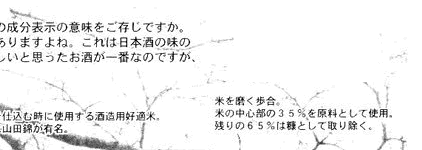 の成分表示の意味をご存じですか。
ありますよね。これは日本酒の味の
しいと思ったお酒が一番なのですが、
仕込む時に使用する酒造用好適米。
山田錦が有名。
米を磨く歩合。
米の中心部の35%を原料として使用。
残りの65%は糠として取り除く。